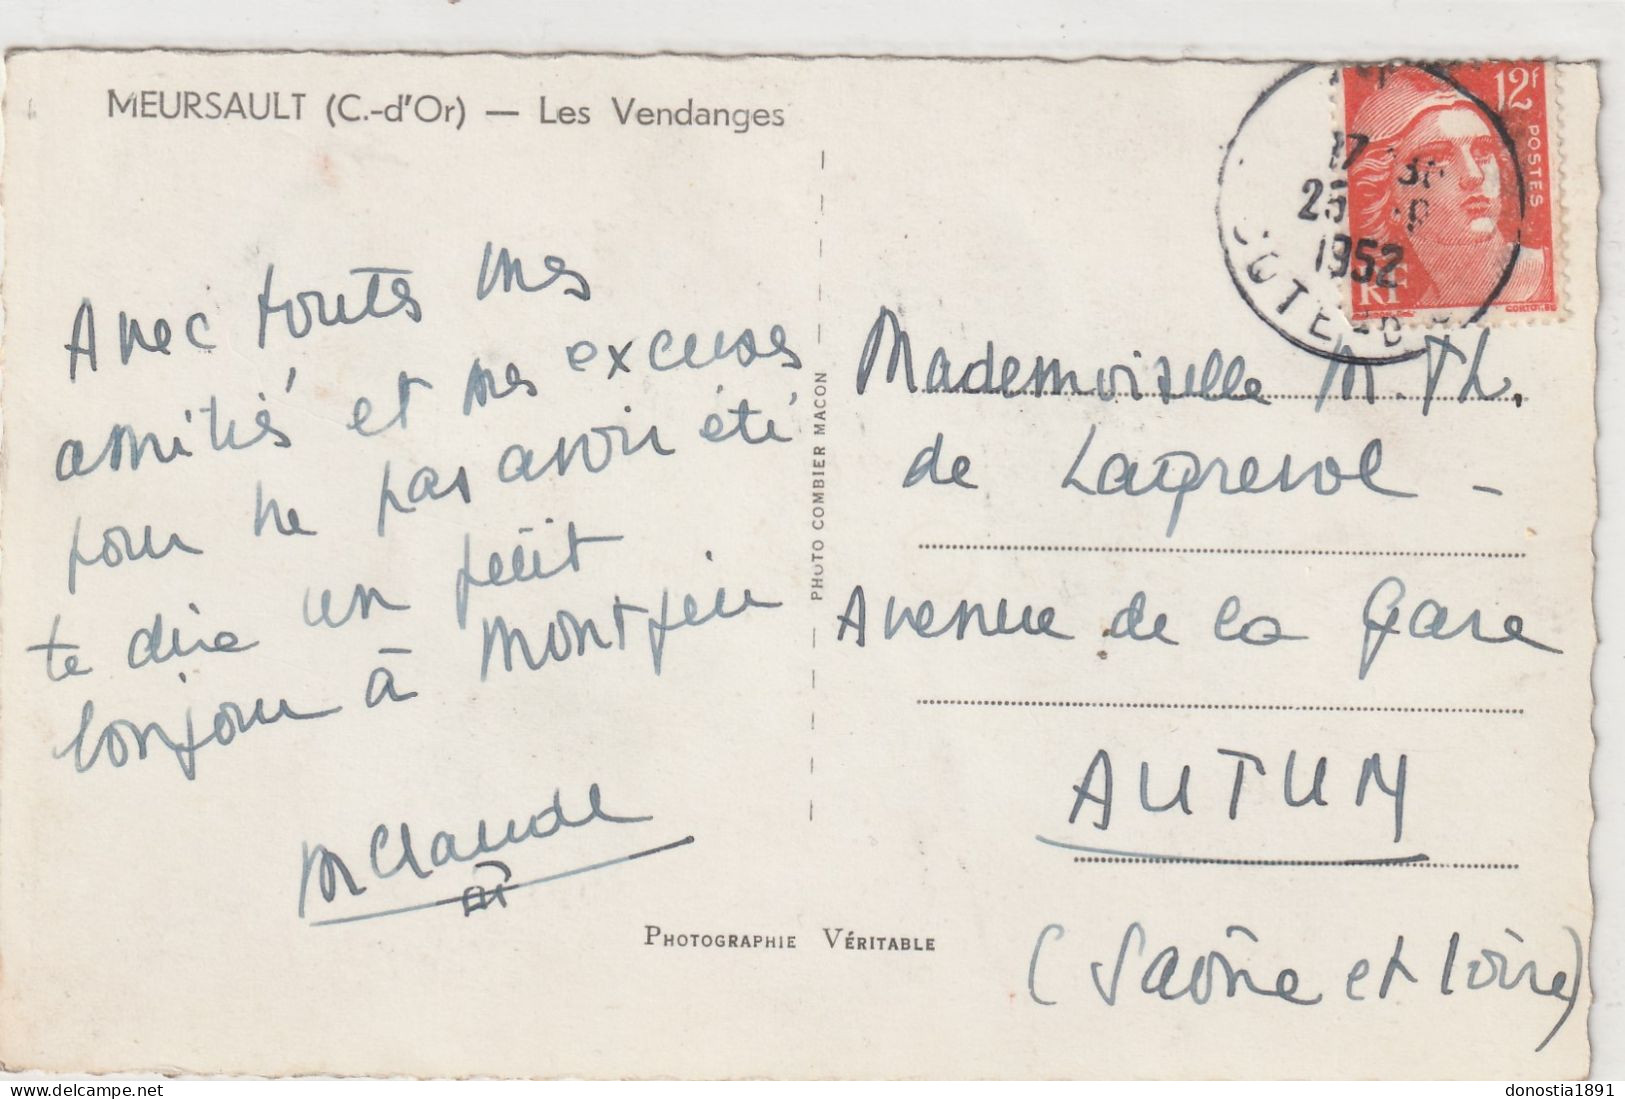 MEURSAULT (C.-d'Or) — Les Vendanges
Avec toutes mes
amitiés et mes excuses
pour ne pas avoir été
te dire un petit
bonjour à Montjeu
M Claude
PHOTO COMBIER MACON
PHOTOGRAPHIE VÉRITABLE
12F
POSTES
RF
17
25
1952
COTE-D
Mademoiselle M. Th.
de Lagrevol -
Avenue de la Gare
AUTUN
(Saône et Loire)
donostia1891